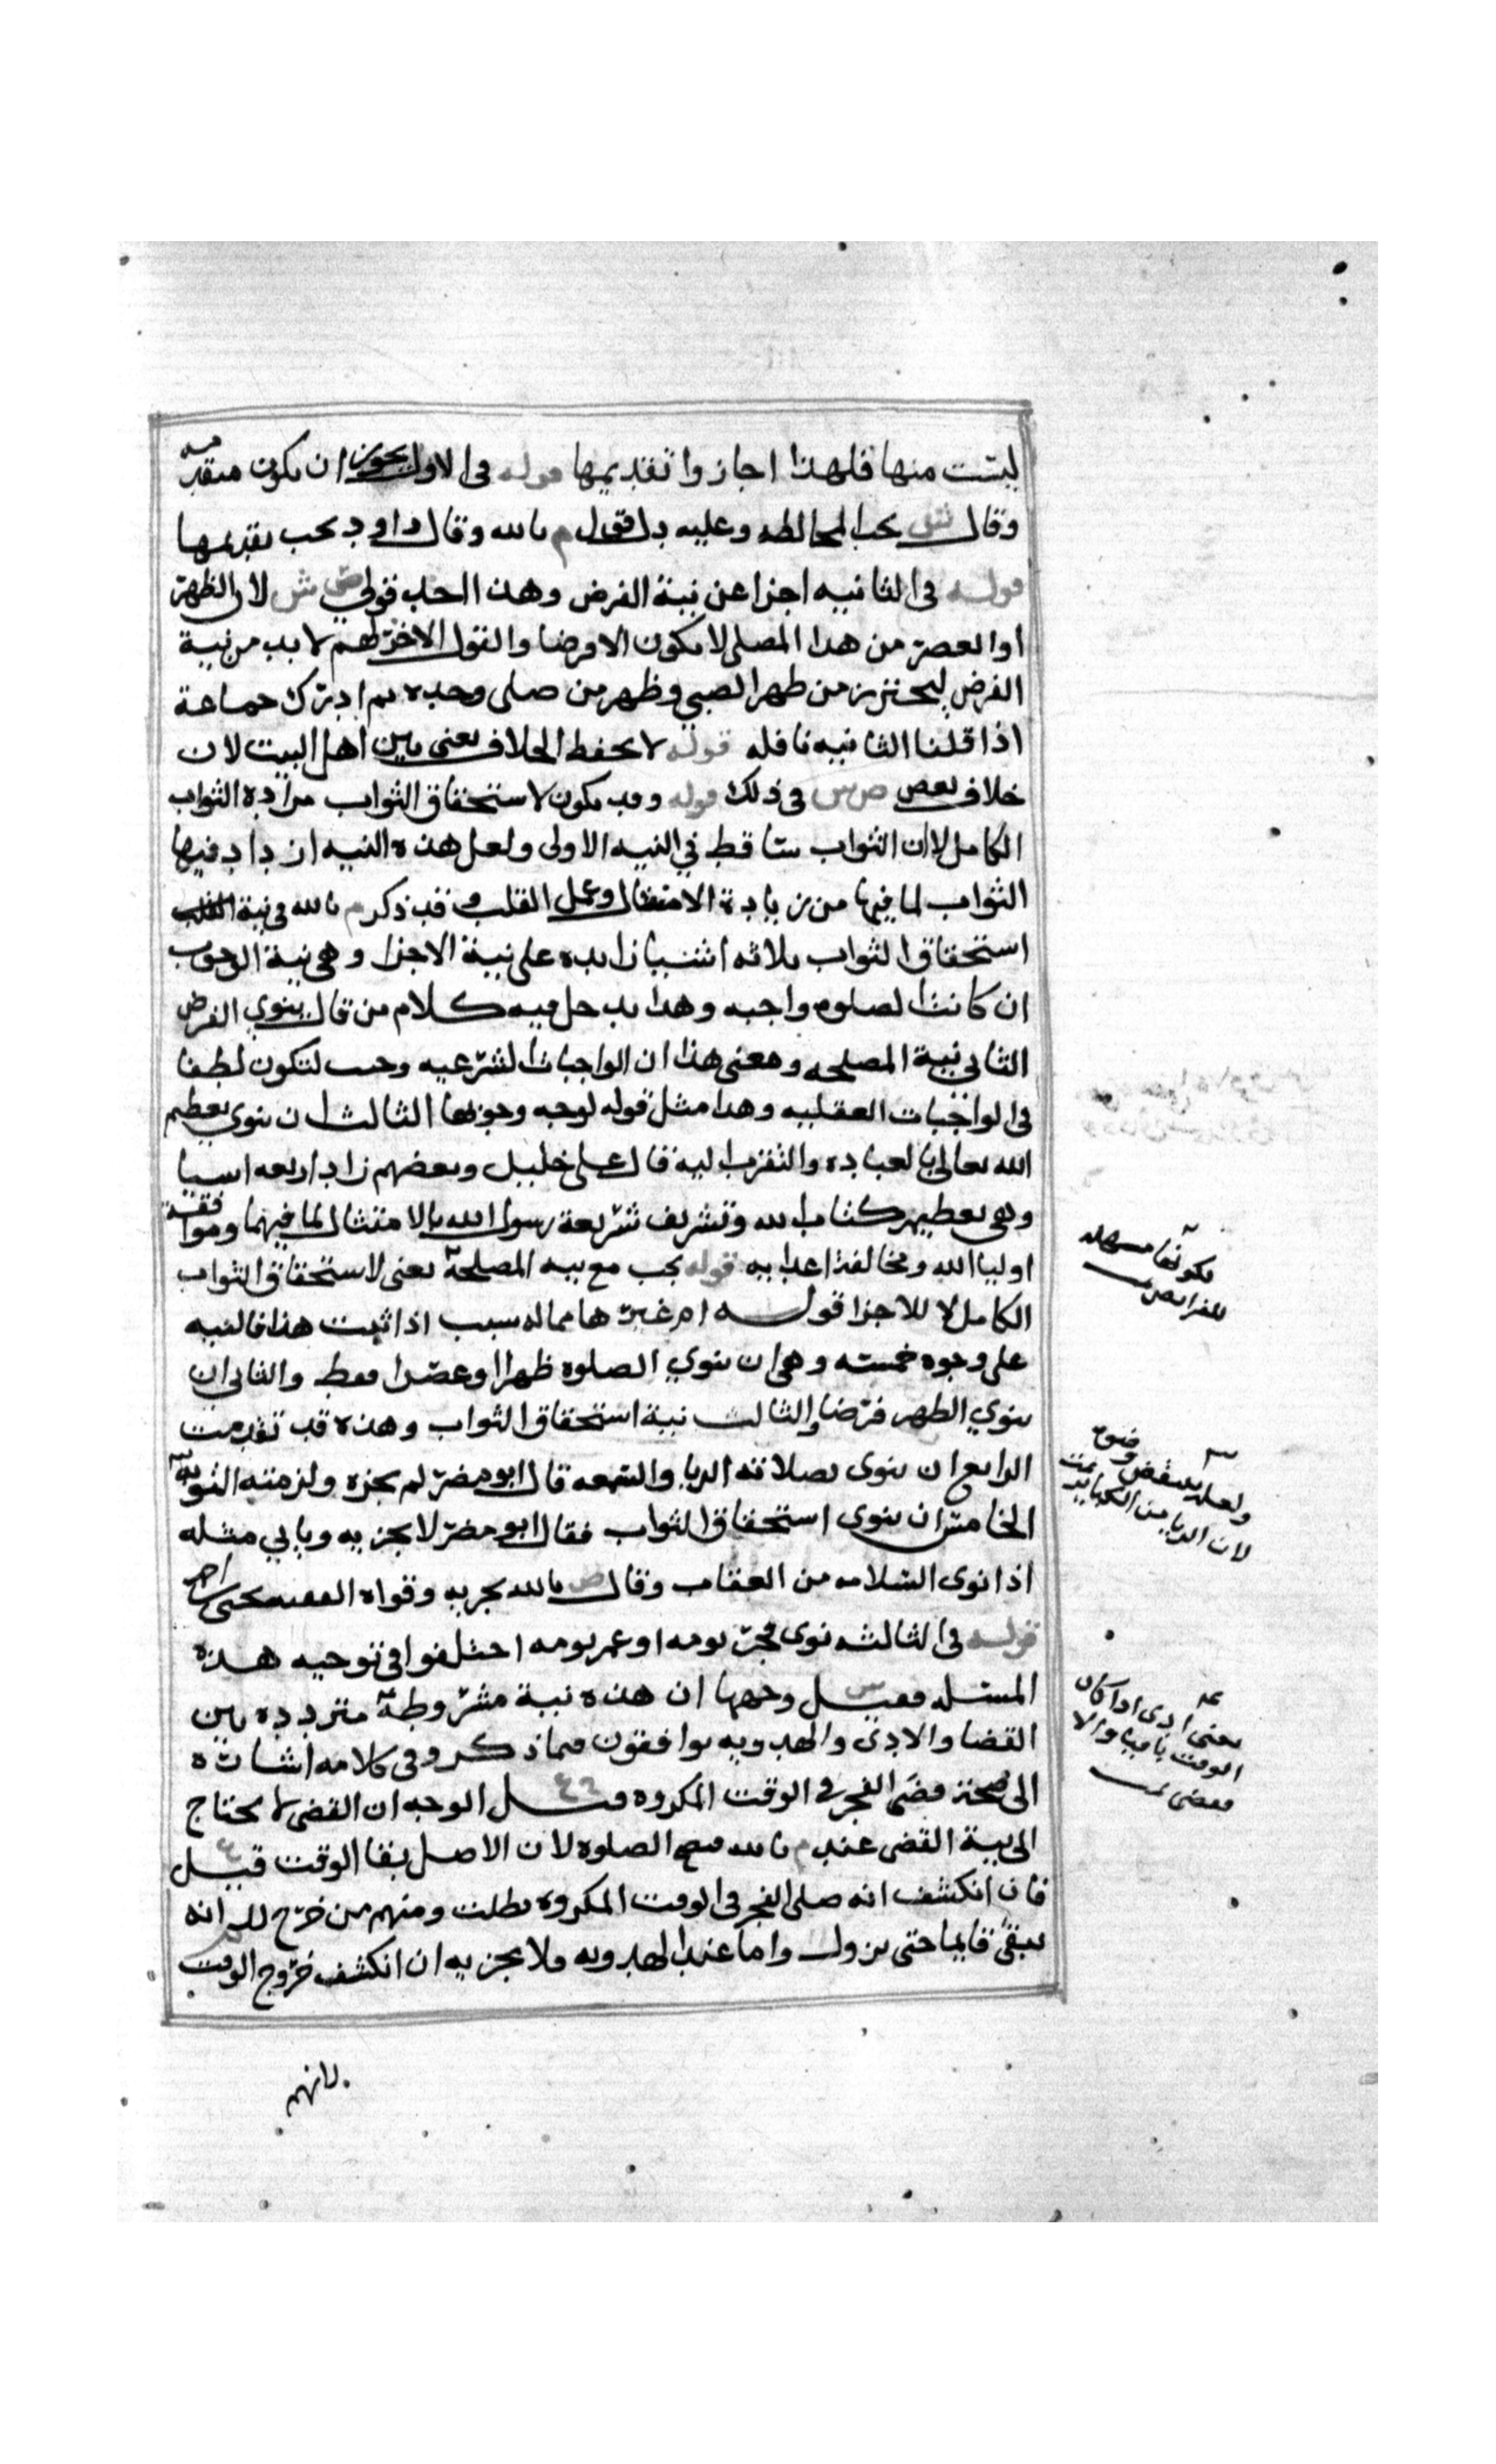 ليست منها فلهذا اجازوا تقديمها قوله في الاولى يجوز ان يكون متقدمه
وقال يجب المخالطه وعليه دل قول م بالله وقال داود يجب تقديمها
قوله في الثانيه اجزا عن نية الفرض وهذا احد قولي ش لان الظهر
او العصر من هذا المصلي لا يكون الا فرضا والقول الاخر لهم لا بد من نية
الفرض ليحترز من ظهر الصبي وظهر من صلى وحده ثم ادرك جماعة
اذا قلنا الثانيه نافله قوله لا يحفظ الخلاف يعني بين اهل البيت لان
خلاف بعض في ذلك قوله وقد يكون لاستحقاق الثواب مراده الثواب
الكامل لان الثواب ساقط في النيه الاولى ولعل هذه النيه ازداد فيها
الثواب لما فيها من زيادة الامتثال وعمل القلب وقد ذكر م بالله في نية
استحقاق الثواب ثلاثه اشيا زايده على نية الاجزا وهي نية الوجوب
ان كانت الصلوه واجبه وهذا يدخل فيه كلام من قال ينوي الفرض
الثاني نية المصلحه ومعنى هذا ان الواجبات الشرعيه وجبت لتكون لطفا
في الواجبات العقليه وهذا مثل قوله لوجه وجوبها الثالث ان ينوي تعظيم
الله تعالى بالعباده والتقرب اليه قال علي خليل وبعضهم زاد اربعه اشيا
وهي تعظيم كتاب الله وتشريف شريعة رسول الله بالامتثال لما فيهما وموافقة
اوليا الله ومخالفة اعدايه قوله يجب مع نيه المصلحة يعني لاستحقاق الثواب
الكامل لا للاجزا قوله ام غيرها مما له سبب اذا ثبت هذا فالنيه
على وجوه خمسه وهي ان ينوي الصلوه ظهرا او عصرا فقط والثاني ان
ينوي الظهر فرضا والثالث نية استحقاق الثواب وهذه قد تقدمت
الرابع ان ينوي بصلاته الريا والسمعه قال ابو مضر لم يجزه ولزمته التوبه
الخامس ان ينوي استحقاق الثواب فقال ابو مضر لا يجزيه وياتي مثله
اذا نوى السلامه من العقاب وقال ص بالله يجزيه وقواه الفقيه يحيى
قوله في الثالثه نوى فجر يومه او عصر يومه اختلفوا في توجيه هذه
المسئله فقيل وجهها ان هذه نية مشروطة مترددة بين
القضا والادى والهدويه يوافقون فيما ذكر وفي كلامه اشارة
الى صحة قضى الفجر في الوقت المكروه وقيل الوجه ان القضى لا يحتاج
الى نية القضى عند م بالله فتصح الصلوه لان الاصل بقا الوقت قيل
فان انكشف انه صلى الفجر في الوقت المكروه بطلت ومنهم من خرج انه
يبقى قايما حتى يزول واما عند الهدويه ولا يجزيه ان انكشف خروج الوقت
لانهم
لكونها مسهله
للفرايض
ولعله ينتقض وضوه
لان الريا من الكباير
يعني ادى اذا كان
الوقت باقيا والا
فقضى